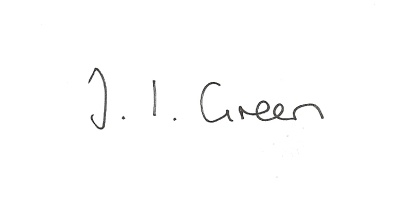 J. I. Green